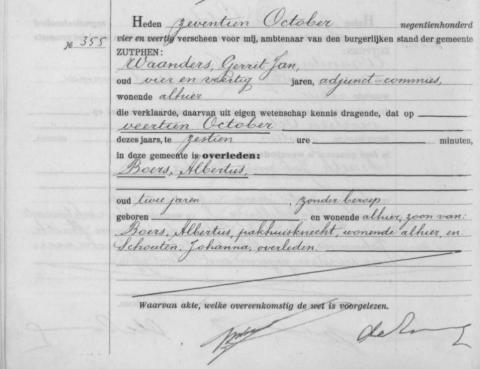 Heden zeventien October negentienhonderd
№ 355 vier en veertig verscheen voor mij, ambtenaar van den burgerlijken stand der gemeente
ZUTPHEN:
Waanders, Gerrit Jan,
oud vier en veertig jaren, adjunct-commies,
wonende alhier
die verklaarde, daarvan uit eigen wetenschap kennis dragende, dat op
veertien October
dezes jaars, te zestien ure minuten,
in deze gemeente is overleden:
Boers, Albertus,
oud twee jaren, zonder beroep
geboren en wonende alhier, zoon van:
Boers, Albertus, pakhuisknecht, wonende alhier, en
Schouten, Johanna, overleden.
Waarvan akte, welke overeenkomstig de wet is voorgelezen.